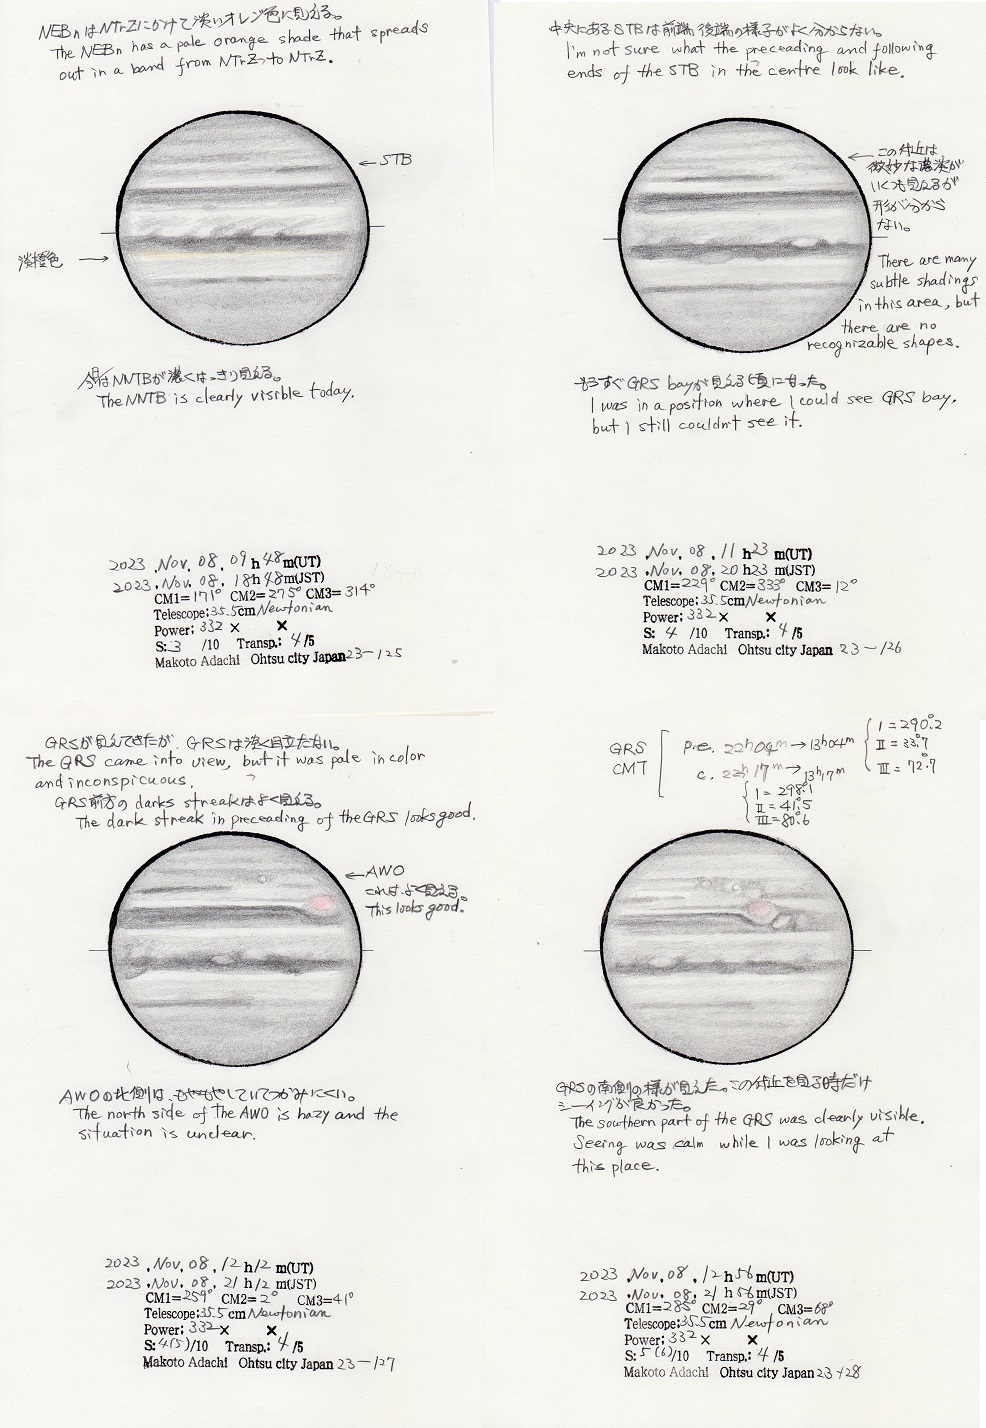 NEBnはNTrZにかけて淡いオレンジ色に見える。
The NEBn has a pale orange shade that spreads
out in a band from NTrZ to NTrZ.
← STB
淡橙色 →
今日はNNTBが濃くはっきり見える。
The NNTB is clearly visible today.
2023 .Nov. 08, 09 h 48 m(UT)
2023 .Nov. 08, 18 h 48 m(JST)
CM1= 171° CM2= 275° CM3= 314°
Telescope: 35.5cm Newtonian
Power: 332 × ×
S: 3 /10 Transp.: 4 /5
Makoto Adachi Ohtsu city Japan 23-125
中央にあるSTBは前端、後端の様子がよく分からない。
I'm not sure what the preceading and following
ends of the STB in the centre look like.
← この付近は、
微妙な濃淡が
いくつも見えるが
形が分から
ない。
There are many
subtle shadings
in this area, but
there are no
recognizable shapes.
もうすぐGRS bayが見える頃になった。
I was in a position where I could see GRS bay,
but I still couldn't see it.
2023 .Nov. 08, 11 h 23 m(UT)
2023 .Nov. 08, 20 h 23 m(JST)
CM1= 229° CM2= 333° CM3= 12°
Telescope: 35.5cm Newtonian
Power: 332 × ×
S: 4 /10 Transp.: 4 /5
Makoto Adachi Ohtsu city Japan 23-126
GRSが見えてきたが、GRSは淡く目立たない。
The GRS came into view, but it was pale in color
and inconspicuous.
GRS前方のdarks streakはよく見える。
The dark streak in preceading of the GRS looks good.
← AWO
これは、よく見える。
This looks good.
AWOの北側は、もやもやしていてつかみにくい。
The north side of the AWO is hazy and the
situation is unclear.
2023 .Nov. 08, 12 h 12 m(UT)
2023 .Nov. 08, 21 h 12 m(JST)
CM1= 259° CM2= 2° CM3= 41°
Telescope: 35.5 cm Newtonian
Power: 332 × ×
S: 4(5) /10 Transp.: 4 /5
Makoto Adachi Ohtsu city Japan 23-127
GRS
CMT
p.e. 22h04m → 13h04m
I = 290.°2
II = 33.°7
III = 72.°7
c. 22h17m → 13h17m
I = 298.°1
II = 41.°5
III = 80.°6
GRSの南側の様が見えた。この付近を見る時だけ
シーイングが良かった。
The southern part of the GRS was clearly visible.
Seeing was calm while I was looking at
this place.
2023 .Nov. 08, 12 h 56 m(UT)
2023 .Nov. 08, 21 h 56 m(JST)
CM1= 285° CM2= 29° CM3= 68°
Telescope: 35.5cm Newtonian
Power: 332 × ×
S: 5(6) /10 Transp.: 4 /5
Makoto Adachi Ohtsu city Japan 23-128